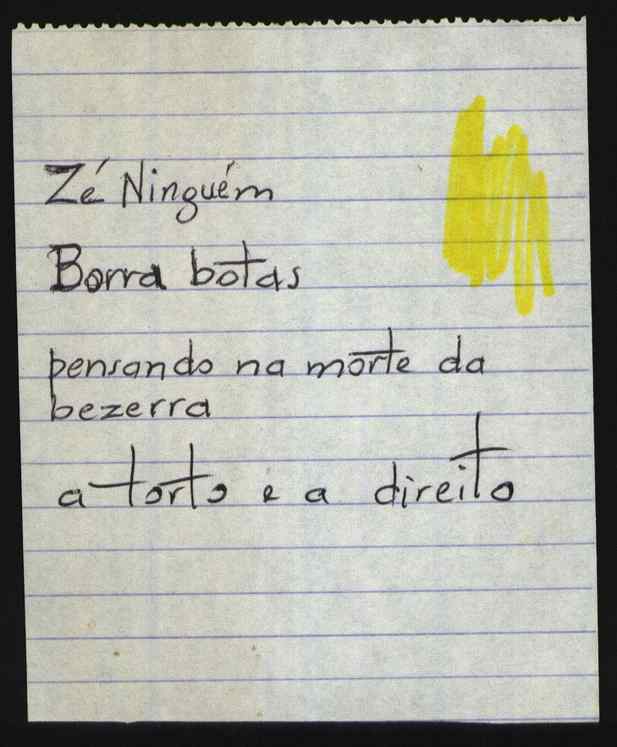 Zé Ninguém
Borra botas
pensando na morte da
bezerra
a torto e a direito